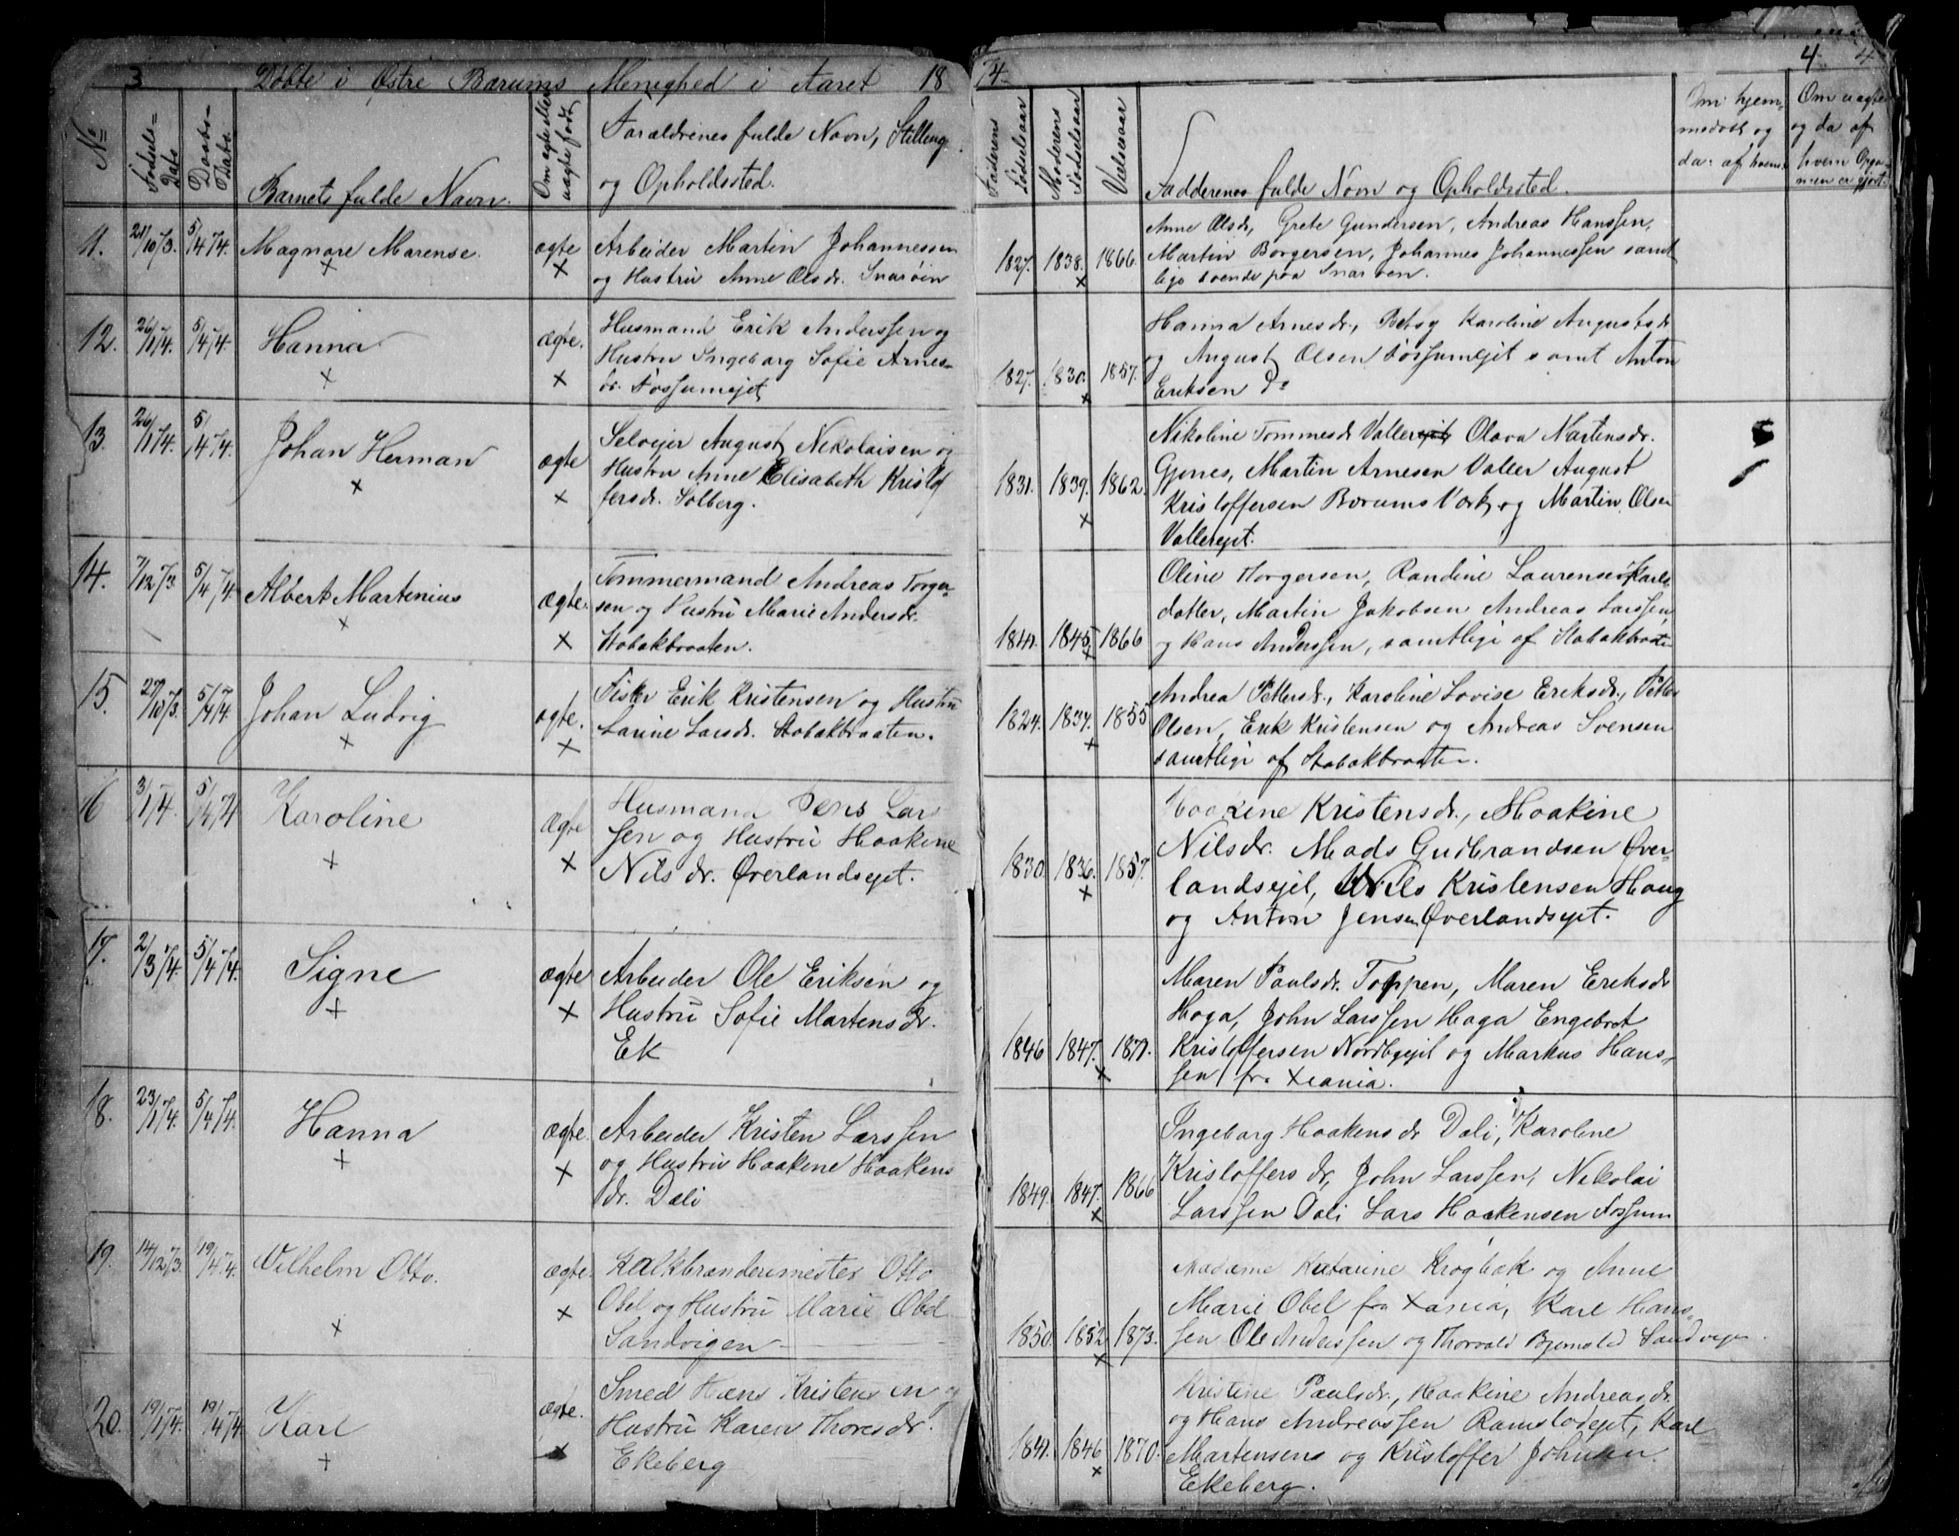 3 Døbte i Østre Bærums Menighed i Aaret 18 74. 4
No
Fødsels-Dato
Daabs-Dato
Barnets fulde Navn.
Om ægte eller uægte født
Forældrenes fulde Navn, Stilling
og Opholdssted.
Faderens Fødselsaar
Moderens Fødselsaar
Vielsesaar
Fadderenes fulde Navn og Opholdssted.
Om hjemmedøbt og da af hvem
Om uægte og da af hvem Opgaven er gjort.
11. 21/10 73. 5/4 74. Magnare Marense. ægte
Arbeider Martin Johannessen
og Hustru Anne Olsdr. Snarøen
1827. 1838. 1866.
Anne Olsdr, Grete Gundersen, Andreas Hanssen,
Martin Borgersen, Johannes Johannessen samt
lige boende paa Snarøen.
12. 26/1 74. 5/4 74. Hanna ægte.
Husmand Erik Anderssen og
Hustru Ingeborg Sofie Arnes-
dr. Fossumejet
1827. 1830. 1857.
Hanna Arnesdr., Betsy Karoline Augustsdr
og August Olsen Fossumejet samt Anton
Eriksen Do
13. 26/1 74. 5/4 74. Johan Herman ægte
Selvejer August Nikolaisen og
Hustru Anne Elisabeth Kristof
fersdr. Solberg.
1831. 1839. 1862.
Nikoline Tommesdr Valler Olava Martensdr.
Gjønes, Martin Arnesen Valler August
Kristoffersen Bærums Værk, og Martin Olsen
Vallerejet.
14. 7/12 73. 5/4 74 Albert Martenius ægte.
Tømmermand Andreas Torger-
sen og Hustru Marie Andersdr.
Stabækbraaten.
1841. 1845. 1866
Oline Torgersen, Randine Laurense Karls
datter, Martin Jakobsen Andreas Larssen,
og Hans Anderssen, samtlige af Stabækbraaten
15. 27/10 73. 5/4 74 Johan Ludvig ægte.
Fisker Erik Kristensen og Hustru
Larine Larsdr. Stabækbraaten.
1824. 1834. 1855
Andrea Pettersdr., Karoline Lovise Eriksdr., Petter
Olsen, Erik Kristensen og Andreas Svensen
samtlige af Stabækbraaten.
16 3/1 74. 5/4 74 Karoline ægte
Husmand Jens Lars
sen og Hustru Haakine
Nilsdr. Øverlandsejet.
1830. 1836. 1857.
Haakine Kristensdr., Haakine
Nilsdr. Mads Gudbrandsen Øver-
landsejet, Nils Kristensen Haug
og Anton Jensen Øverlandsejet.
17. 2/3 74. 5/4 74. Signe ægte
Arbeider Ole Eriksen og
Hustru Sofie Martensdr.
Ek
1846 1847. 1871.
Maren Paulsdr. Toppen, Maren Eriksdr
Haga, John Larssen Haga Engebret
Kristoffersen Nordbyejet og Markus Hans-
sen fra Xtania.
18. 23/1 74. 5/4 74. Hanna ægte.
Arbeider Kristen Larssen
og Hustru Haakine Haakens
dr. Dæli
1849. 1847. 1866
Ingeborg Haakensdr Dæli, Karoline
Kristoffersdr, John Larssen, Nikolai
Larssen Dæli Lars Haakensen Fossum
19. 14/12 73. 19/4 74. Vilhelm Otto. ægte.
Kalkbrænderimester Otto
Obel og Hustru Marie Obel
Sandvigen
1850. 1852 1873.
Madame Katarine Krogbæk og Anne
Marie Obel fra Xania, Karl Hans-
sen Ole Anderssen og Thorvald Bjernsted Sandvigen
20. 19/1 74. 19/4 74. Karl ægte.
Smed Hans Kristensen og
Hustru Karen Thoresdr.
Ekeberg
1841. 1846 1870.
Kristine Paulsdr., Haakine Andreasdr.
og Hans Andreassen Ramstadejet, Karl
Martensens og Kristoffer Johnsen
Ekeberg.